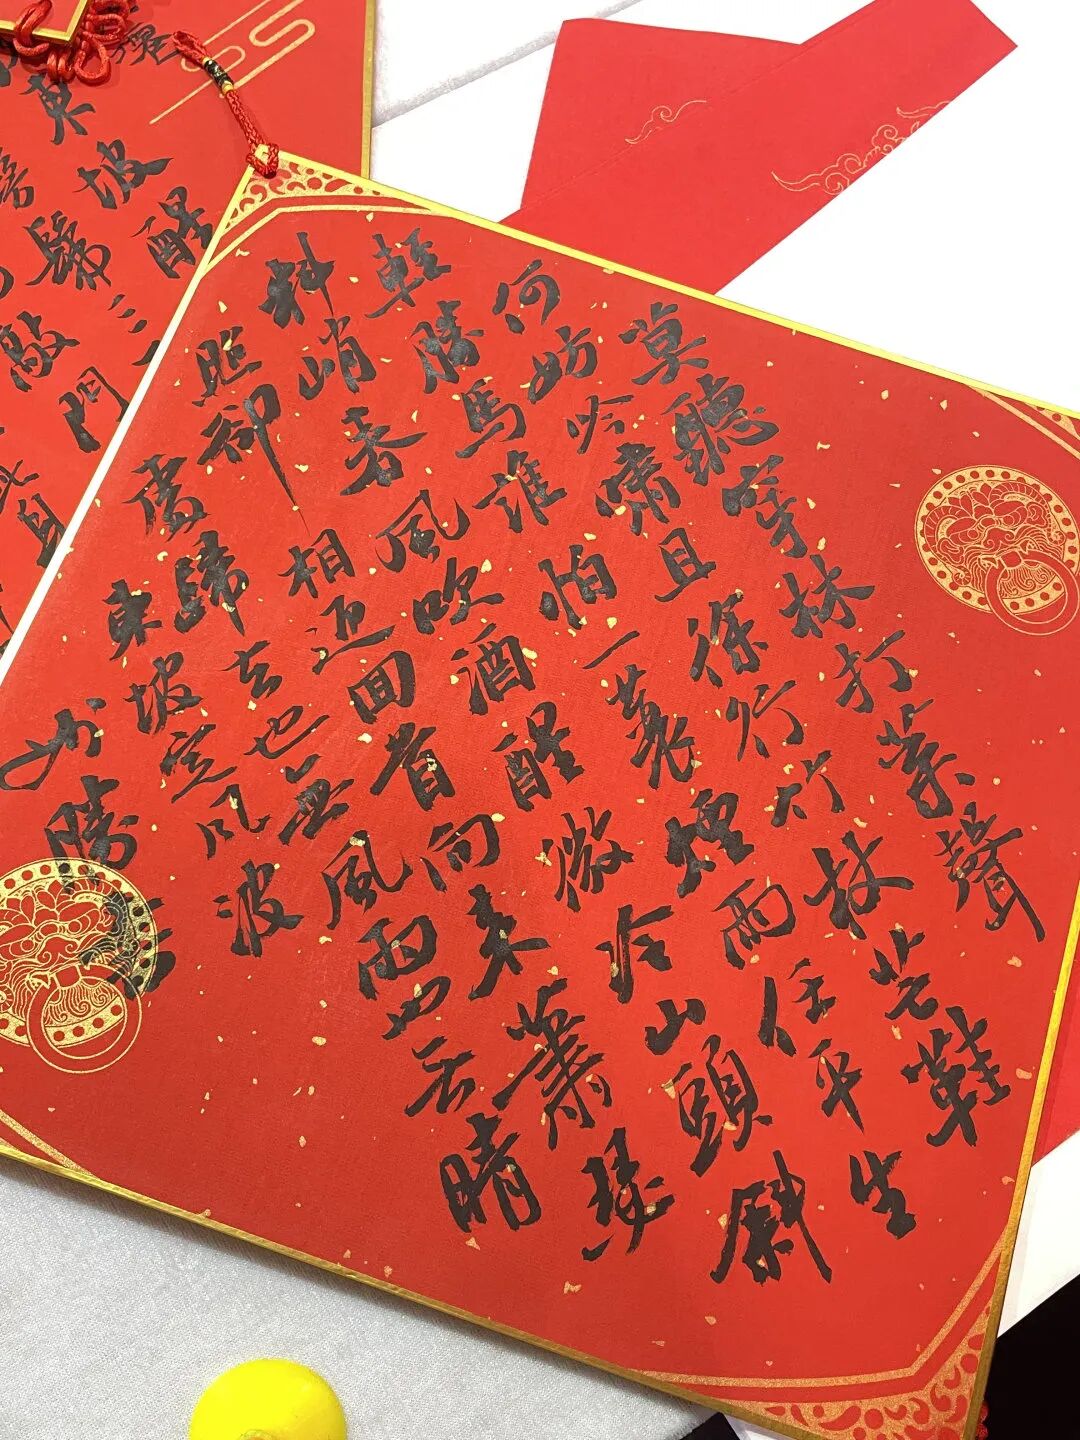 莫聽穿林打葉聲
何妨吟嘯且徐行竹杖芒鞋
輕勝馬誰怕一蓑煙雨任平生
料峭春風吹酒醒微冷山頭斜
照卻相迎回首向來蕭瑟
處歸去也無風雨也无晴
東坡定风波
東坡醒
髣髴三
敲門
身